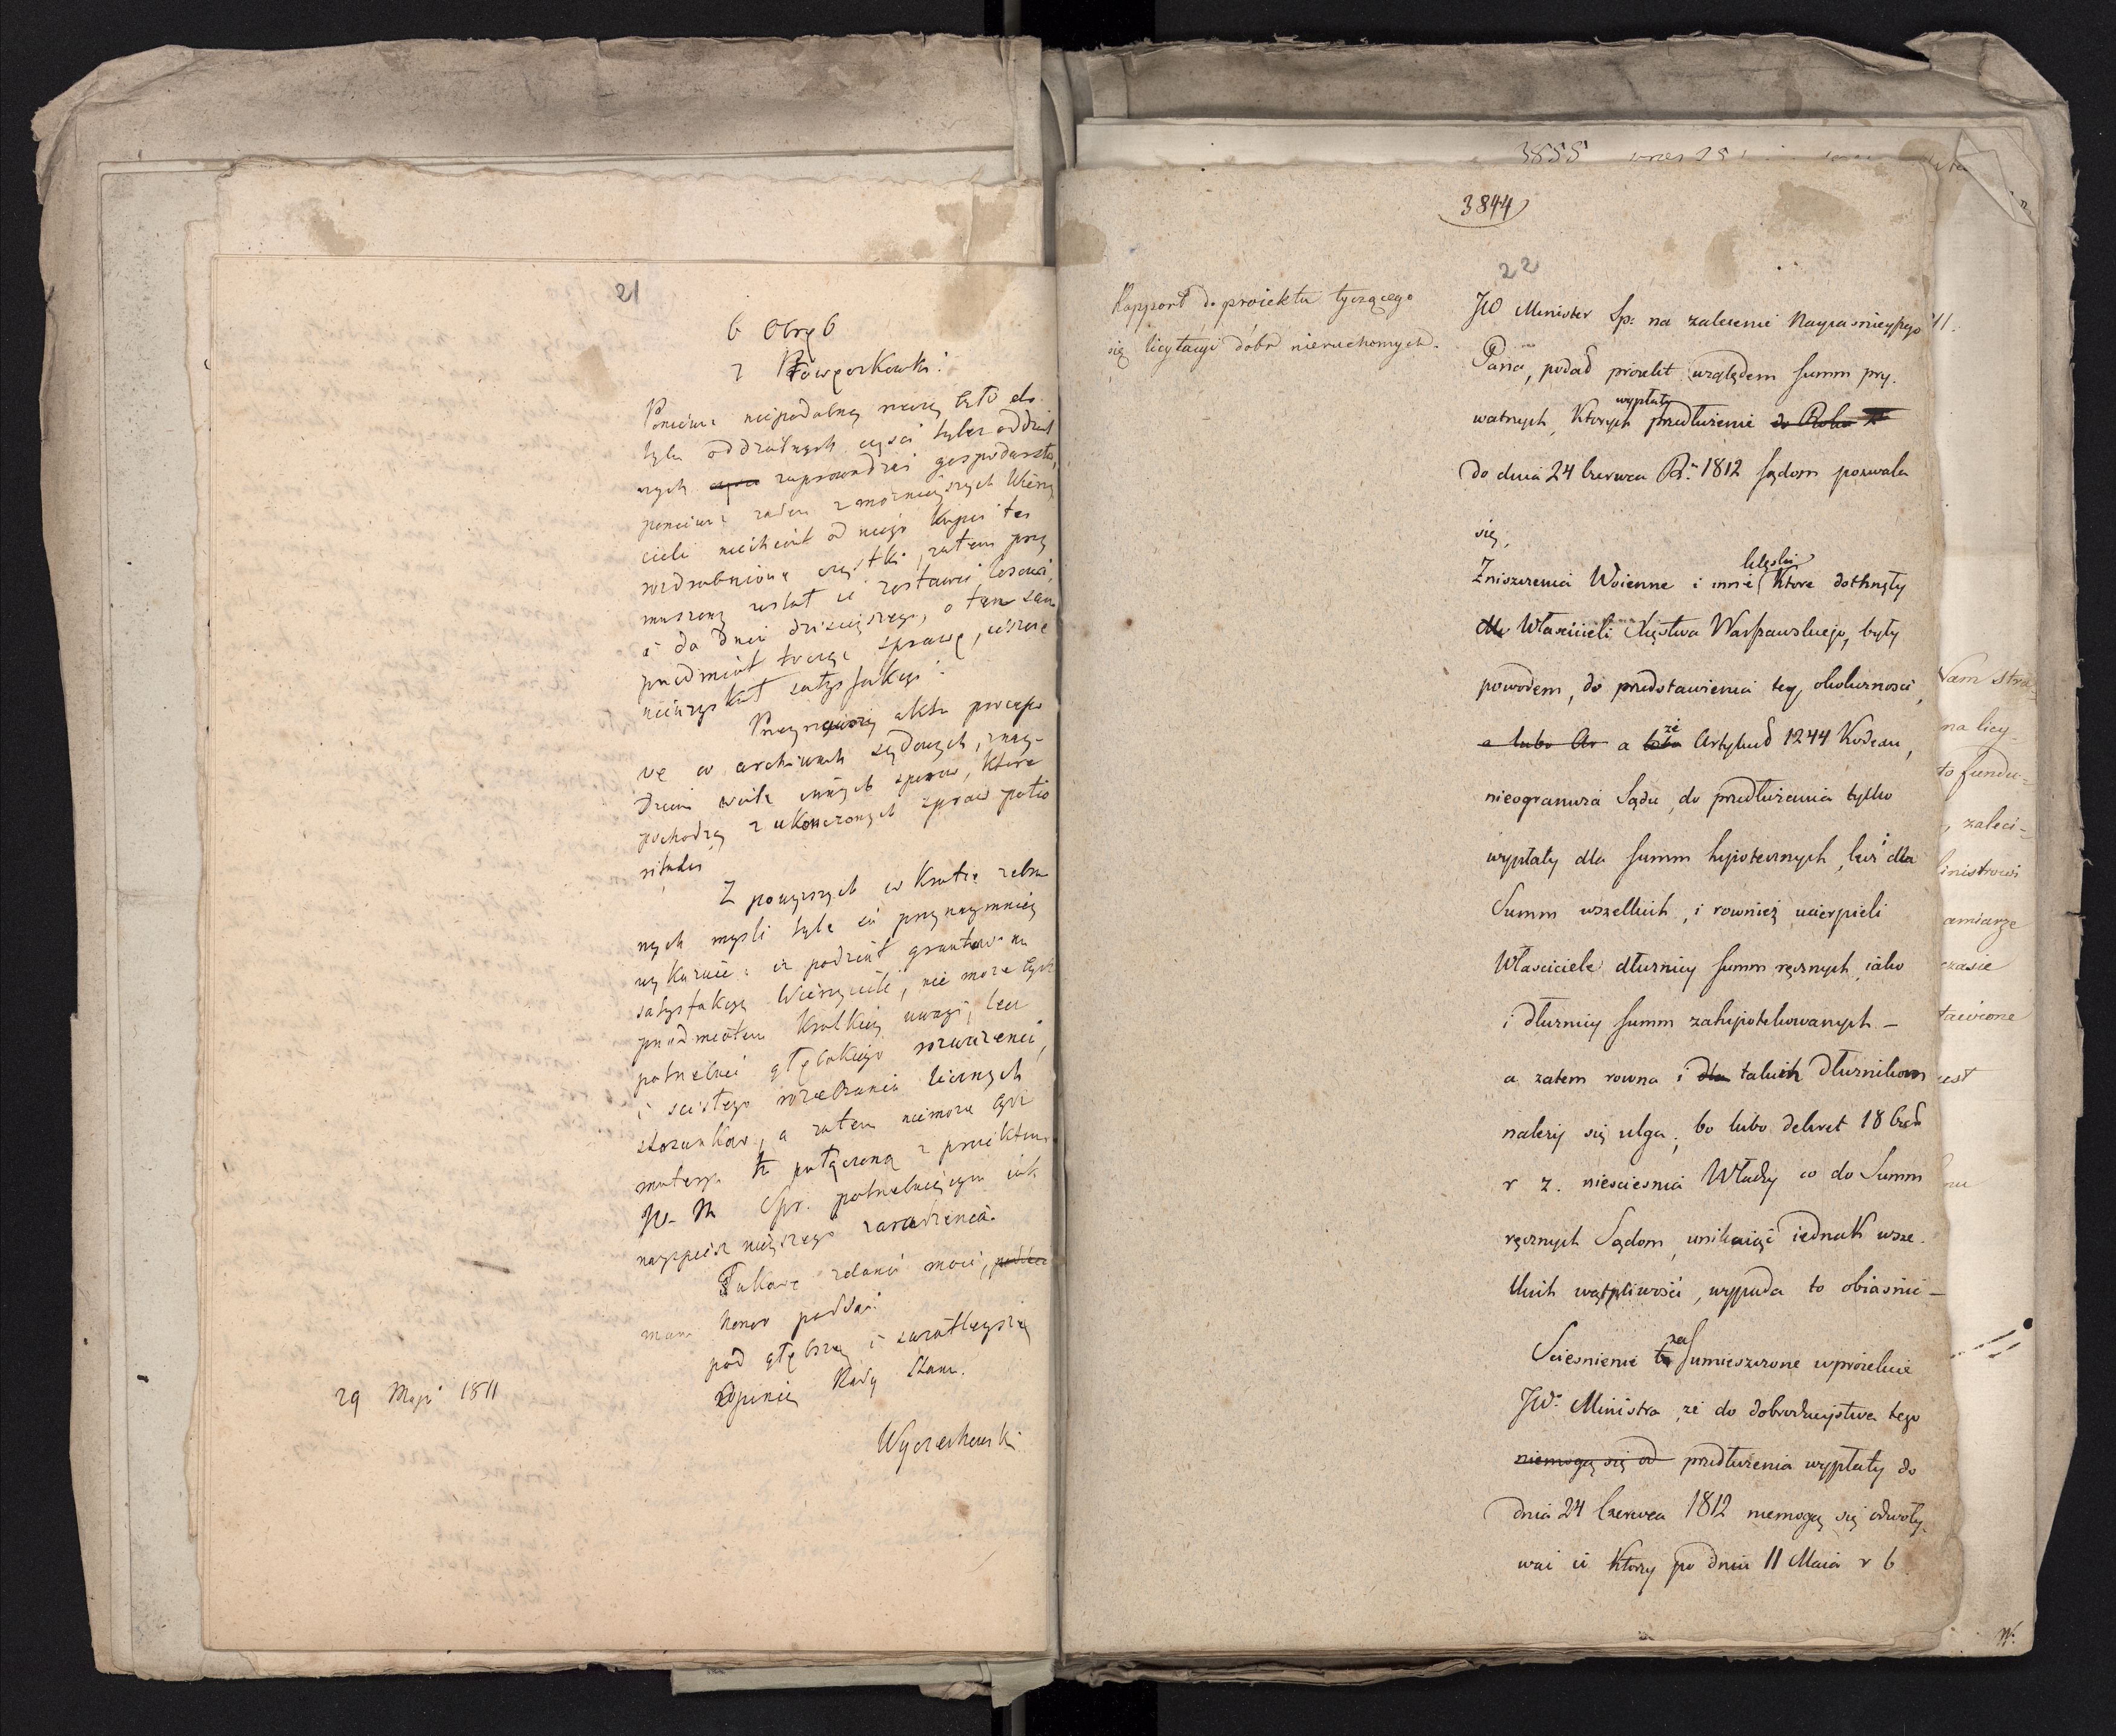 21
6 Obręb
z
Ponieważ niepodobną rzeczą było do
tylu oddzielnych części tyleż oddziel
nych zaprowadzać gospodarstw,
ponieważ żaden z możnieyszych Wierzy
cieli niechciał od niego kupić tes
rozdrobnione cząstki, zatem przy
muszony został ie zostawić losowi,
i do dnia dzisieyszego, o ten sam
przedmiot tocząc sprawę, ieszcze
nieuzyskał satysfakcyi.
Przeyrzawszy akta
w archiwach sądowych, znay-
dzie wiele innych spraw, które
pochodzą z ukończonych spraw
Z powyższych w krotce zebra
nych myśli tyle się przynaymniey
wykazuie: iż podział gruntów na
satysfakcyą Wierzycieli, nie może bydź
przedmiotem krotkiey uwagi, lecz
potrzebuie głębokiego rozważenia,
i scisłego rozebrania licznych
stosunkow, a zatem niemoże bydź
materya ta połączoną z proiektem
JW. M Spr. potrzebuiącym iak
nayspiesznieyszego zaradzenia.
Takowe zdanie moie,
mam honor poddać
pod głębszą i swiatleyszą
Opinię Rady Stanu.
29 Maja 1811
Wyczechowski
3855
3844
22
Rapport do proiektu tyczącego
się licytacyi dóbr nieruchomych.
JW Minister Sp: na zalecenie Nayiasnieyszego
Pana, podał proiekt względem summ pry-
wypłaty
watnych, których przedłużenie do Roku
do dnia 24 Czerwca R. 1812 Sądom pozwala
się,
klęski
Zniszczenia Woienne i inne które dotknęły
Właścicieli Xięstwa Warszawskiego, były
powodem, do przedstawienia tey okoliczności,
że
a lubo Ar a lubo Artykuł 1244 Kodexu,
nieogranicza Sądu, do przedłużania tylko
wypłaty dla summ hypotecznych, lecz i dla
Summ wszelkich, i również ucierpieli
Właściciele dłużnicy summ ręcznych, iako
i dłużnicy summ zahypotekowanych –
a zatem rowna i dla takich Dłużnikom
należy się ulga, bo lubo dekret 18
r z. niesciesnia Władzy co do Summ
ręcznych Sądom, unikaiąc iednak wsze-
lkich wątpliwości, wypada to obiaśnić –
Sciesnienie zaś umieszczone w proiekcie
JW. Ministra, że do dobrodzieystwa tego
niemogą się od przedłużenia wypłaty do
dnia 24 Czerwca 1812 niemogą się odwoły-
wać ci którzy po dniu 11 Maia r b
Vam
na licy-
to fundu-
zaleci-
inistrowi
amiarze
czasie
tawione
iest